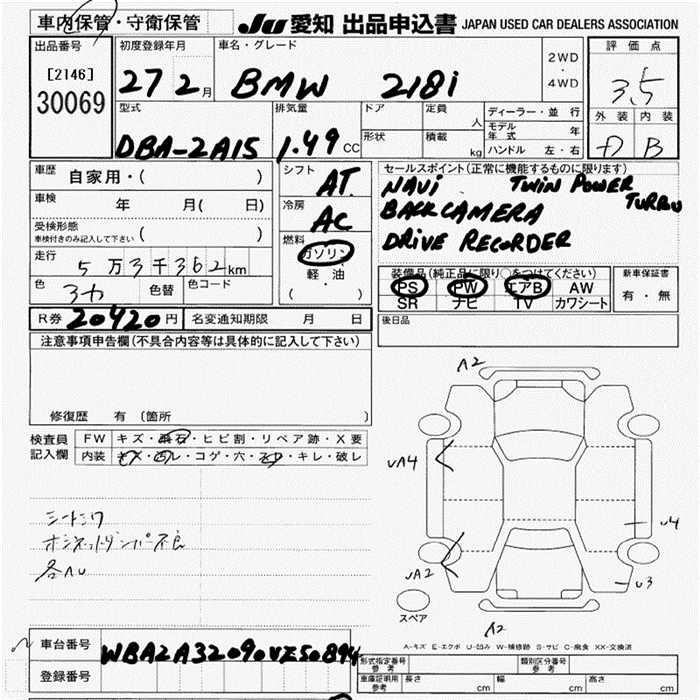 車内保管・守衛保管
JU 愛知 出品申込書 JAPAN USED CAR DEALERS ASSOCIATION
出品番号
[2146]
30069
初度登録年月
27 2月
車名・グレード
BMW 218i
2WD
・
4WD
評価点
3.5
外装 内装
D B
型式
DBA-2A15
排気量
1.49 CC
ドア
形状
定員
人
積載
kg
ディーラー・並行
モデル年式 年
ハンドル 左・右
車歴 自家用・( )
車検 年 月( 日)
受検形態
車検付きのみ記入して下さい ( )
走行 5万3千362km
色
色替
色コード
シフト
AT
冷房
AC
燃料
ガソリン
・
軽・油
( )
セールスポイント(正常に機能するものに限ります)
NAVI TWIN POWER
TURBO
BACK CAMERA
DRIVE RECORDER
装備品(純正品に限り〇をつけてください)
PS PW エアB AW
SR ナビ TV カワシート
新車保証書
有・無
R券 20420円
名変通知期限 月 日
後日品
注意事項申告欄(不具合内容等は具体的に記入して下さい)
修復歴 有 (箇所 )
検査員
記入欄
FW キズ・飛石・ヒビ割・リペア跡・X要
内装 キズ・汚レ・コゲ・穴・スレ・キレ・破レ
シートシワ
ボンネットダンパー不良
各ヘU
A2
UA4
U4
UA2
U3
スペア
A2
A-キズ E-エクボ U-凹み W-補修跡 S-サビ C-腐食 XX-交換済
車台番号
WBA2A32090VZ50894
登録番号
形式指定番号
参考
類別区分番号
参考
車庫証明用
参考
長さ cm
幅 cm
高さ cm